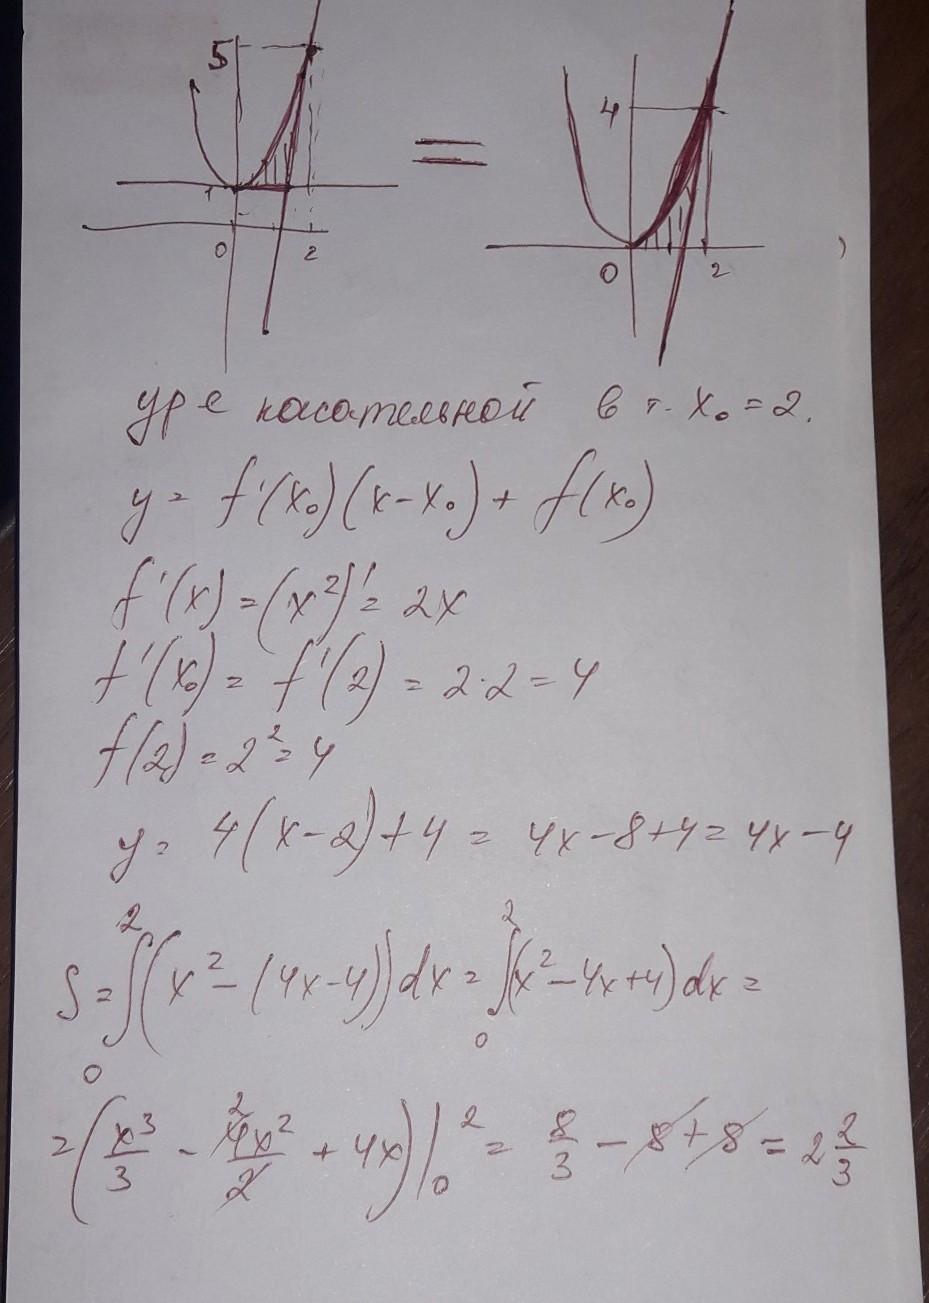 5 4
1
0 2 0 2
ур е касательной в т. x₀ = 2.
y = f'(x₀)(x-x₀) + f(x₀)
f'(x) = (x²)' = 2x
f'(x₀) = f'(2) = 2·2 = 4
f(2) = 2² = 4
y = 4(x-2)+4 = 4x-8+4 = 4x-4
S = ∫₀²(x² - (4x-4))dx = ∫₀²(x²-4x+4)dx =
= (x³/3 - 4x²/2 + 4x)|₀² = 8/3 - 8 + 8 = 2 2/3